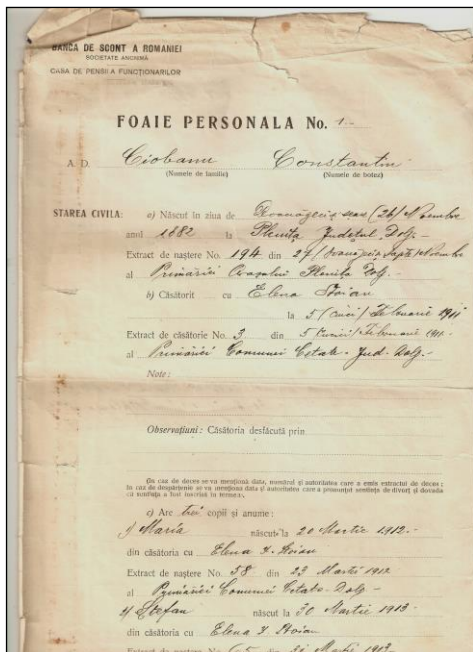 BANCA DE SCONT A ROMANIEI
SOCIETATE ANONIMĂ
CASA DE PENSII A FUNCȚIONARILOR
FOAIE PERSONALA No. 1
A D. Ciobanu Constantin
(Numele de familie) (Numele de botez)
STAREA CIVILA: a) Născut în ziua de (26) Noembre
anul 1882 la Plenița Județul Dolj.-
Extract de naștere No. 194 din 27 Noembre
al Primăriei Orașului Plenița Dolj.-
b) Căsătorit cu Elena Stoian
la 5 (cinci) Februarie 1911
Extract de căsătorie No. 3 din 5 (cinci) Februarie 1911.-
al Primăriei Comunei Cetate - Jud. Dolj.-
Note:
Observațiuni: Căsătoria desfăcută prin
În caz de deces se va menționă data, numărul și autoritatea care a emis extractul de deces;
în caz de despărțenie se va menționa data și autoritatea care a pronunțat sentința de divorț și dovada
că sentința a fost înscrisă în termen.
c) Are trei copii și anume:
1) Maria născut la 20 Martie 1912.-
din căsătoria cu Elena I. Stoian
Extract de naștere No. 58 din 23 Martie 1912
al Primăriei Comunei Cetate - Dolj.-
2) Ștefan născut la 30 Martie 1913
din căsătoria cu Elena I. Stoian
Extract de naștere No. 65 din 31 Martie 1913